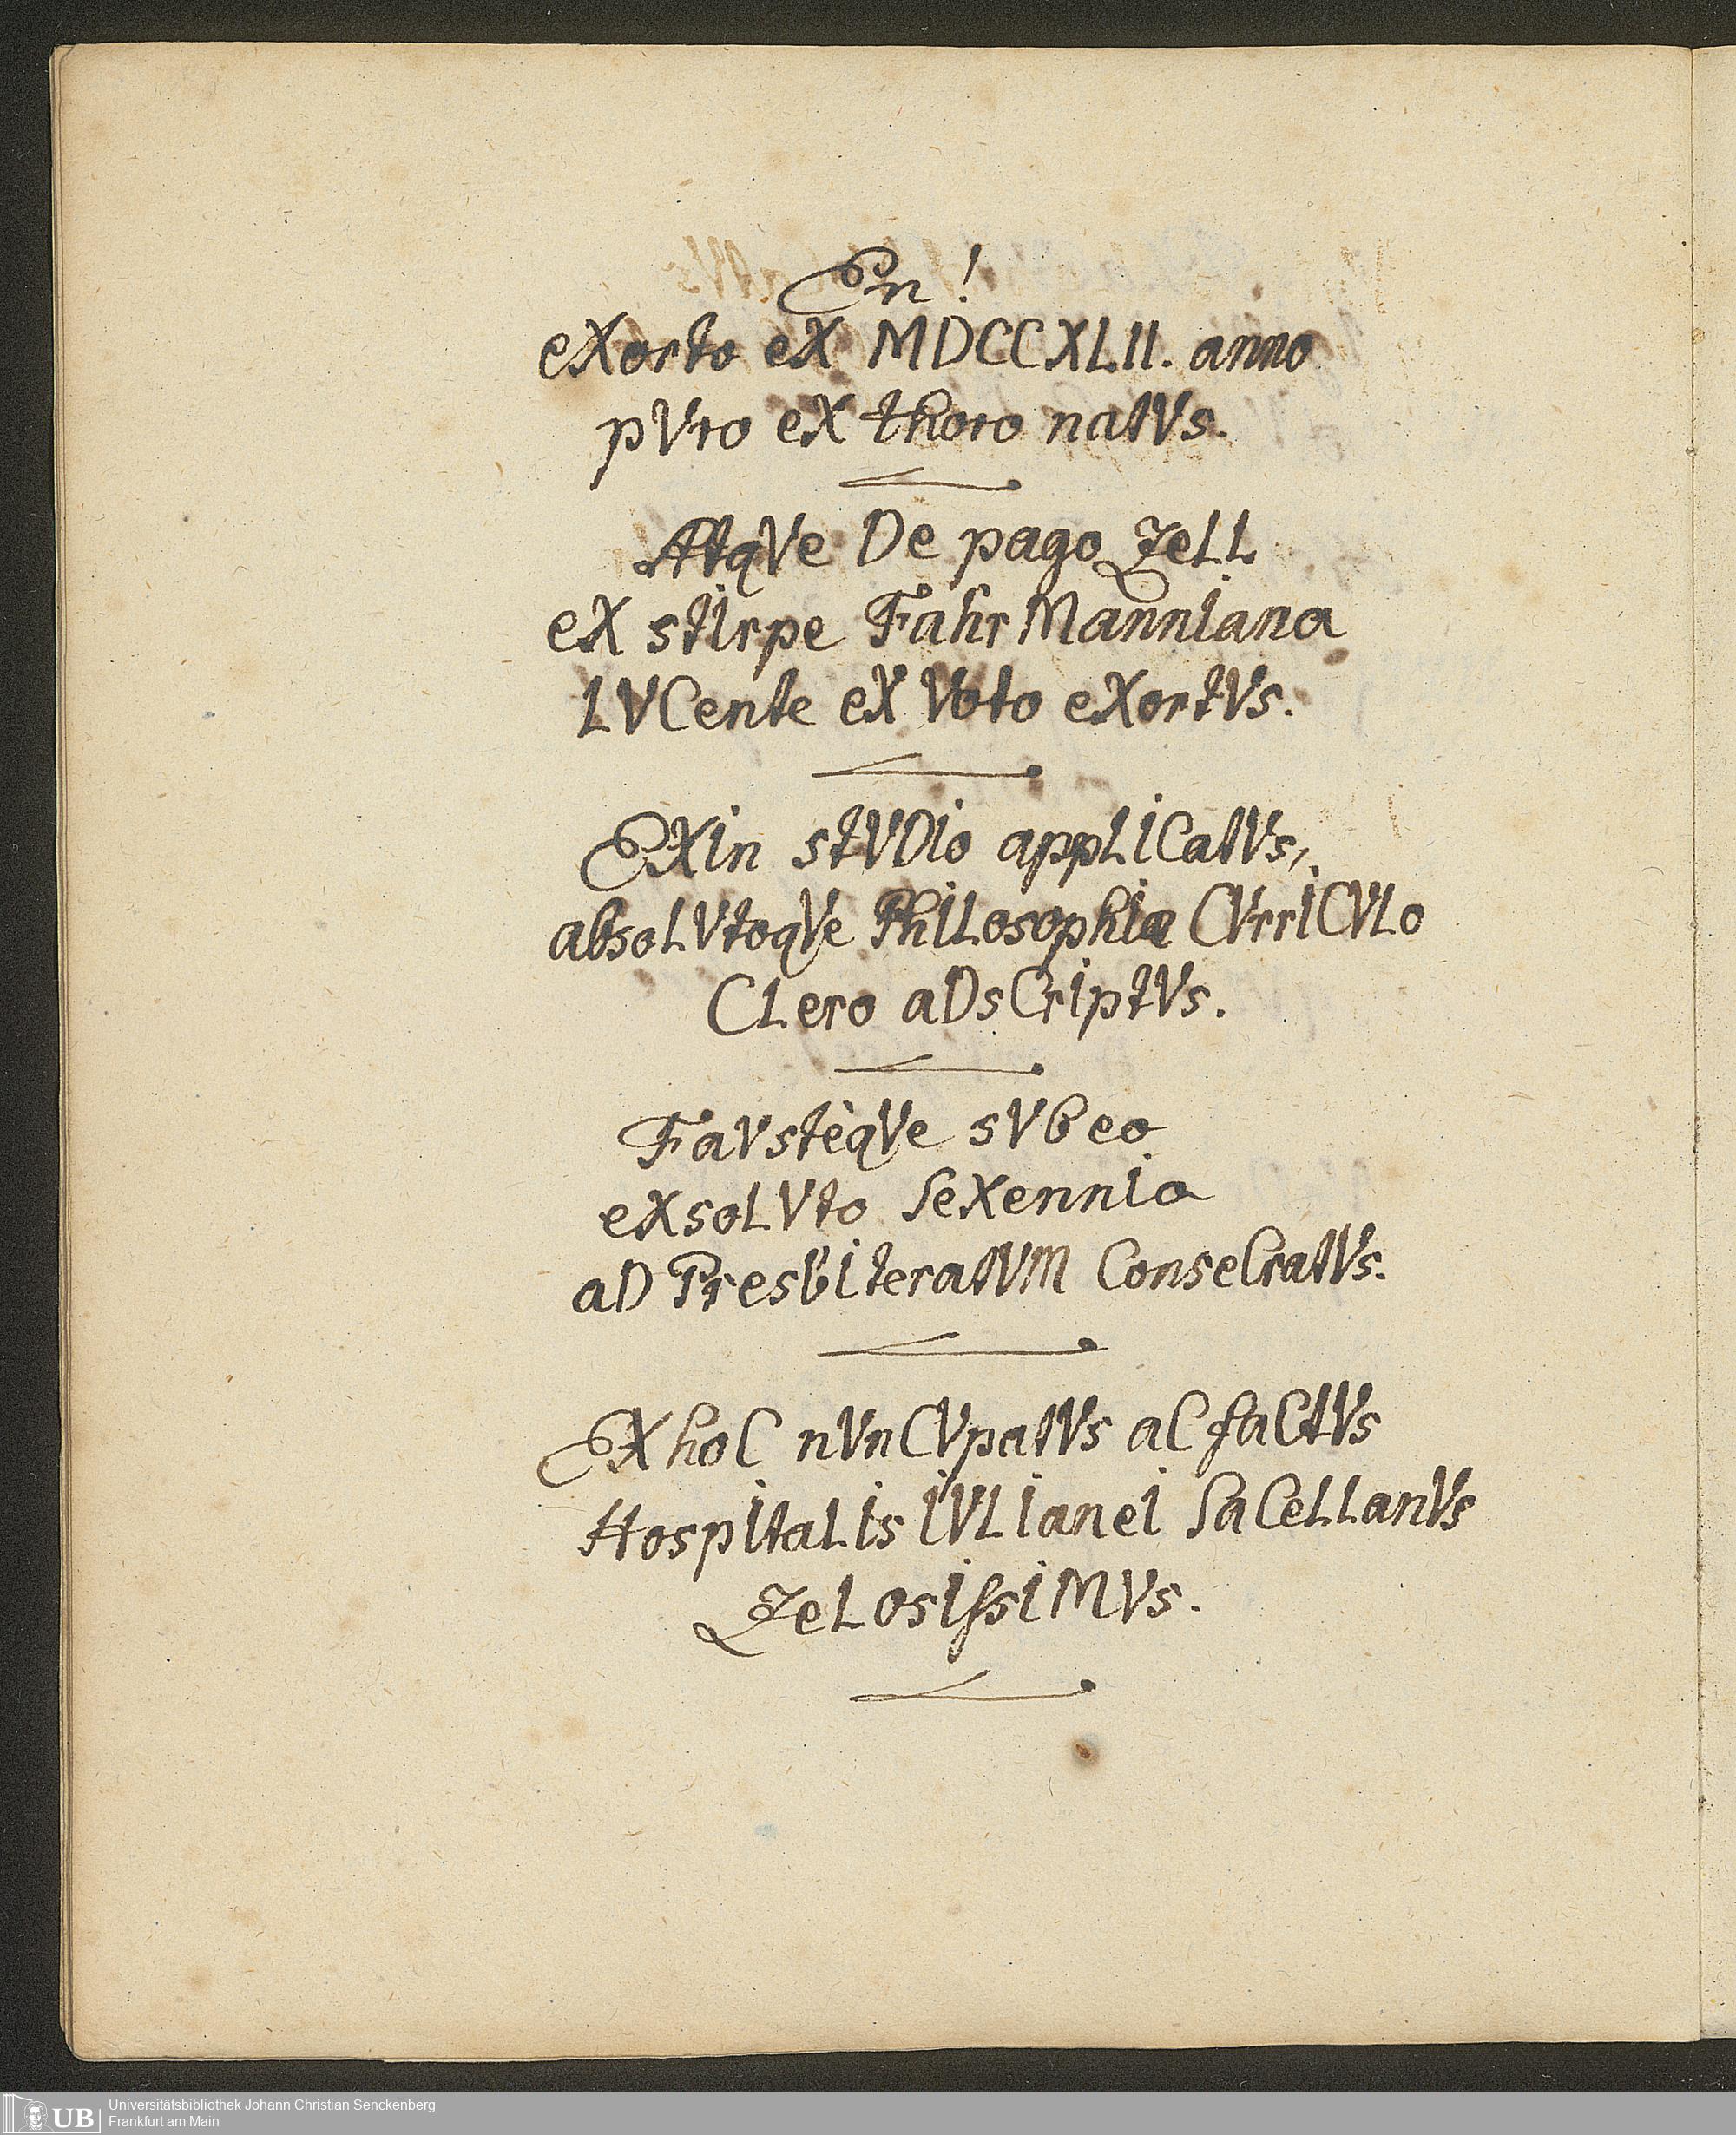 En!
eXorto eX MDCCXLII. anno
pVro eX thoro natVs.
AtqVe De pago ZeLL
eX stIrpe FahrMannIana
LVCente eX Voto eXortVs.
EXIn stVDIo appLICatVs,
absoLVtoqVe PhILosophIæ CVrrICVLo
CLero aDsCrIptVs.
FaVstèqVe sVb eo
eXsoLVto SeXennIo
aD PresbIteratVM ConseCratVs.
EX hoC nVnCVpatVs aC faCtVs
HospItaLIs IVLIaneI SaCeLLanVs
ZeLosIssIMVs.
UB Universitätsbibliothek Johann Christian Senckenberg
Frankfurt am Main